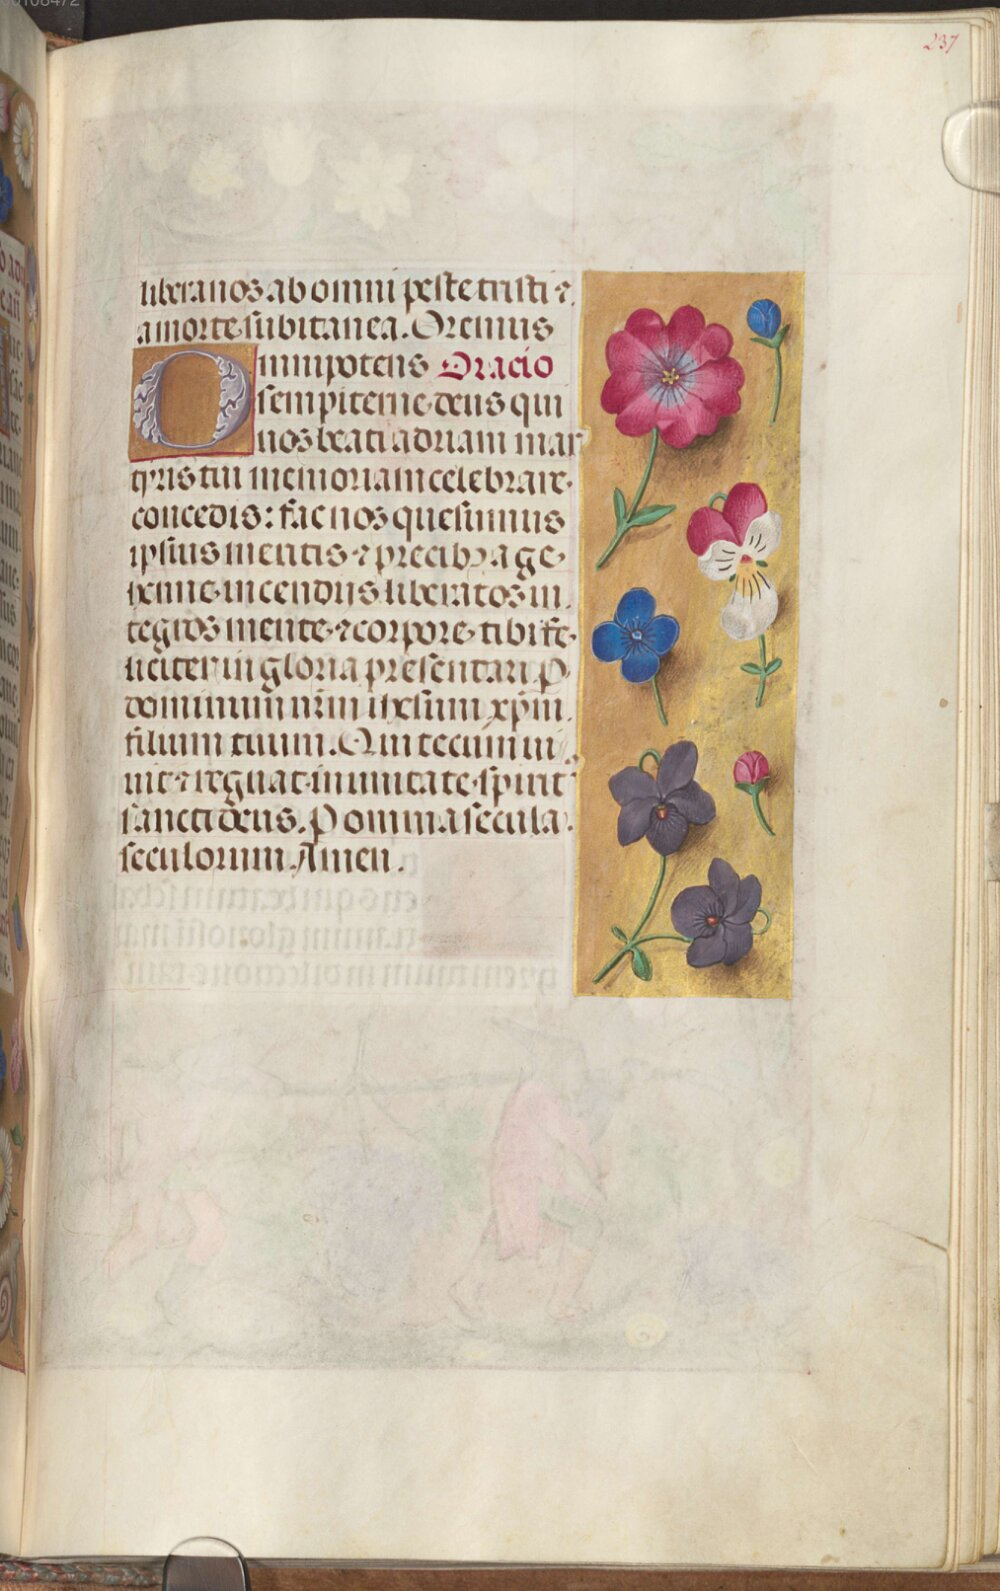 237
libera nos ab omni peste tristi ⁊
a morte subitanea. Oremus
Omnipotens Oracio
sempiterne deus qui
nos beati adriani mar
tyris tui memoriam celebrare
concedis: fac nos quesumus
ipsius meritis ⁊ precibꝫ a ge
henne incendijs liberatos in
tegros mente ⁊ corpore tibi fe
liciter in gloria presentari. P
dominum nrm ihesum xpm
filium tuum. Qui tecum ui
uit ⁊ regnat in unitate spirit
sancti deus. P omnia secula
seculorum. Amen.